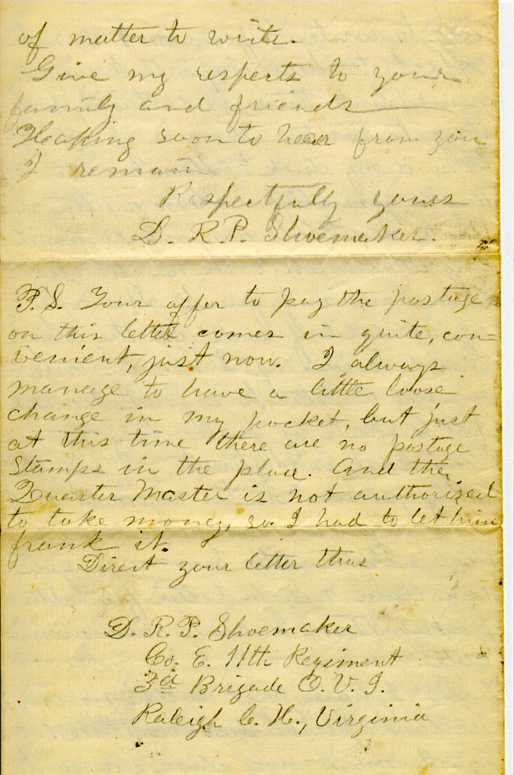 of matter to write.
Give my respects to your
family and friends
Hoaping soon to hear from you
I remain
Respectfully yours
D. R. P. Shoemaker.
P.S. Your offer to pay the postage
on this letter comes in quite, con-
vement, just now. I always
manage to have a little loose
change in my pocket, but just
at this time there are no postage
Stamps in the place. And the
Quarter Master is not authorized
to take money, so I had to let him
frank it.
Direct your letter thus
D. R. P. Shoemaker
Co. E. 11th Regiment
3d Brigade O. V. I.
Raleigh C. H., Virginia